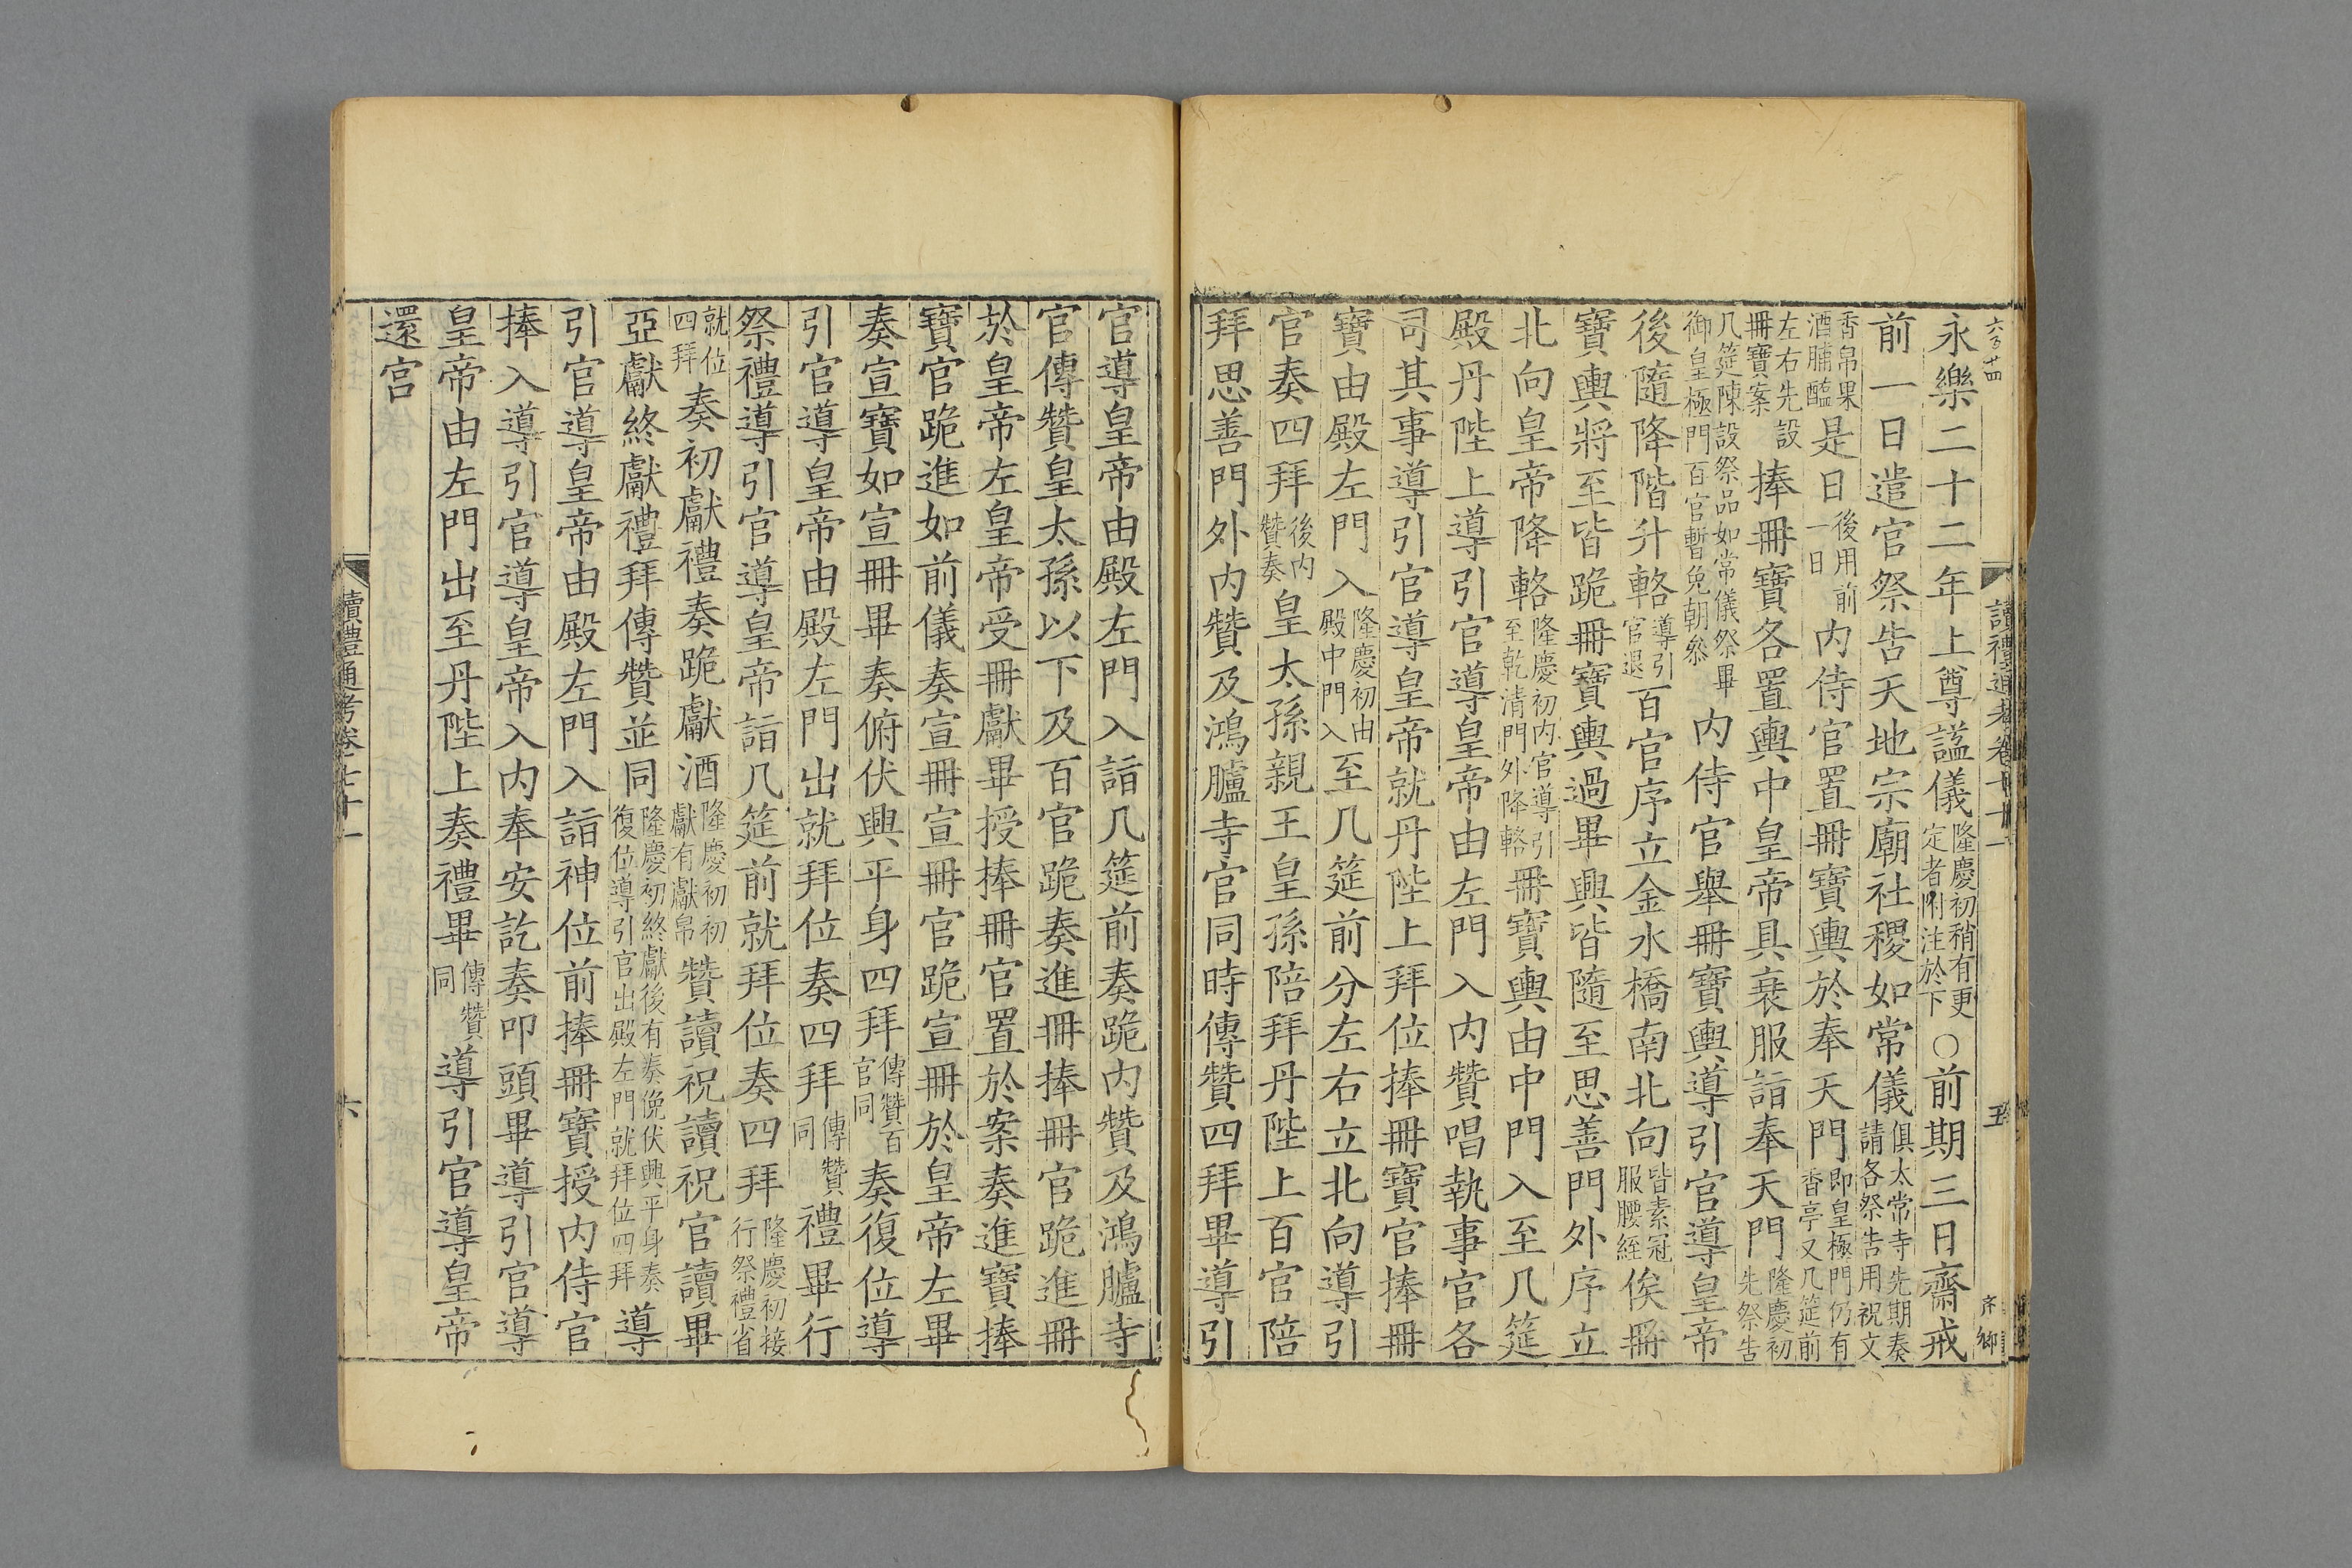 六百廿四
讀禮通考卷七十一
五
永樂二十二年上尊謚儀隆慶初稍有更定者附注於下○前期三日齋戒
前一日遣官祭告天地宗廟社稷如常儀俱太常寺先期奏請各祭告用祝文
香帛果酒脯醢是日後用前一日内侍官置冊寶輿於奉天門即皇極門仍有香亭又几筵前
左右先設冊寶案捧冊寶各置輿中皇帝具衰服詣奉天門隆慶初先祭告
几筵陳設祭品如常儀祭畢御皇極門百官暫免朝叅内侍官舉冊寶輿導引官導皇帝
後隨降階升輅導引官退百官序立金水橋南北向皆素冠服腰絰俟冊
寶輿將至皆跪冊寶輿過畢興皆隨至思善門外序立
北向皇帝降輅隆慶初内官導引至乾清門外降輅冊寶輿由中門入至几筵
殿丹陛上導引官導皇帝由左門入内贊唱執事官各
司其事導引官導皇帝就丹陛上拜位捧冊寶官捧冊
寶由殿左門入隆慶初由殿中門入至几筵前分左右立北向導引
官奏四拜後内贊奏皇太孫親王皇孫陪拜丹陛上百官陪
拜思善門外内贊及鴻臚寺官同時傳贊四拜畢導引
官導皇帝由殿左門入詣几筵前奏跪内贊及鴻臚寺
官傳贊皇太孫以下及百官跪奏進冊捧冊官跪進冊
於皇帝左皇帝受冊獻畢授捧冊官置於案奏進寶捧
寶官跪進如前儀奏宣冊宣冊官跪宣冊於皇帝左畢
奏宣寶如宣冊畢奏俯伏興平身四拜傳贊百官同奏復位導
引官導皇帝由殿左門出就拜位奏四拜傳贊同禮畢行
祭禮導引官導皇帝詣几筵前就拜位奏四拜隆慶初接行祭禮省
就位四拜奏初獻禮奏跪獻酒隆慶初初獻有獻帛贊讀祝讀祝官讀畢
亞獻終獻禮拜傳贊並同隆慶初終獻後有奏俛伏興平身奏復位導引官出殿左門就拜位四拜導
引官導皇帝由殿左門入詣神位前捧冊寶授内侍官
捧入導引官導皇帝入内奉安訖奏叩頭畢導引官導
皇帝由左門出至丹陛上奏禮畢傳贊同導引官導皇帝
還宫
讀禮通考卷七十一
六